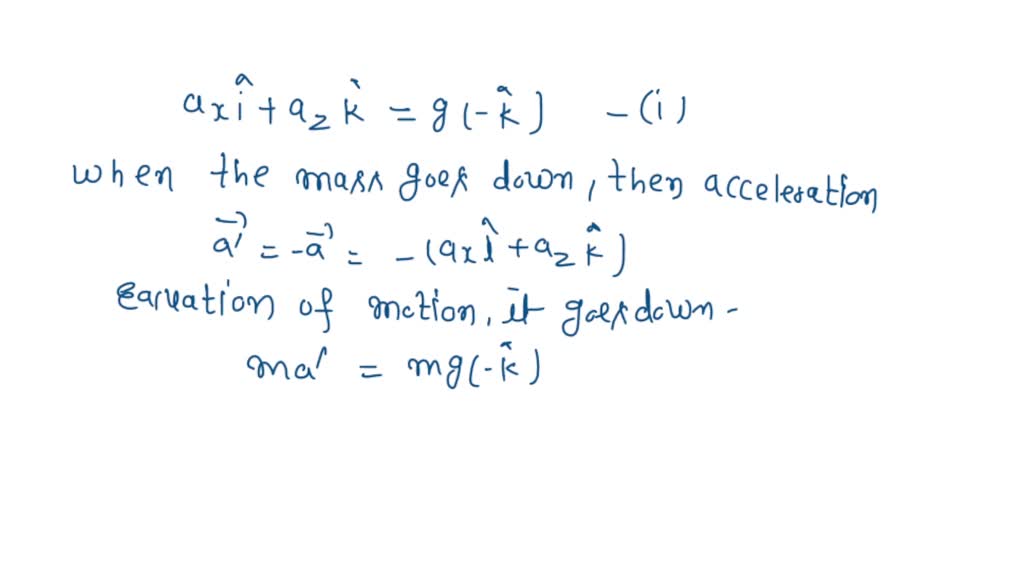 axî + a_z k̂ = g(-k̂) -(i)
when the mass goes down, then acceleration
a⃗' = -a⃗' = -(axî + a_z k̂)
Earuation of motion, it goes down -
ma' = mg(-k̂)